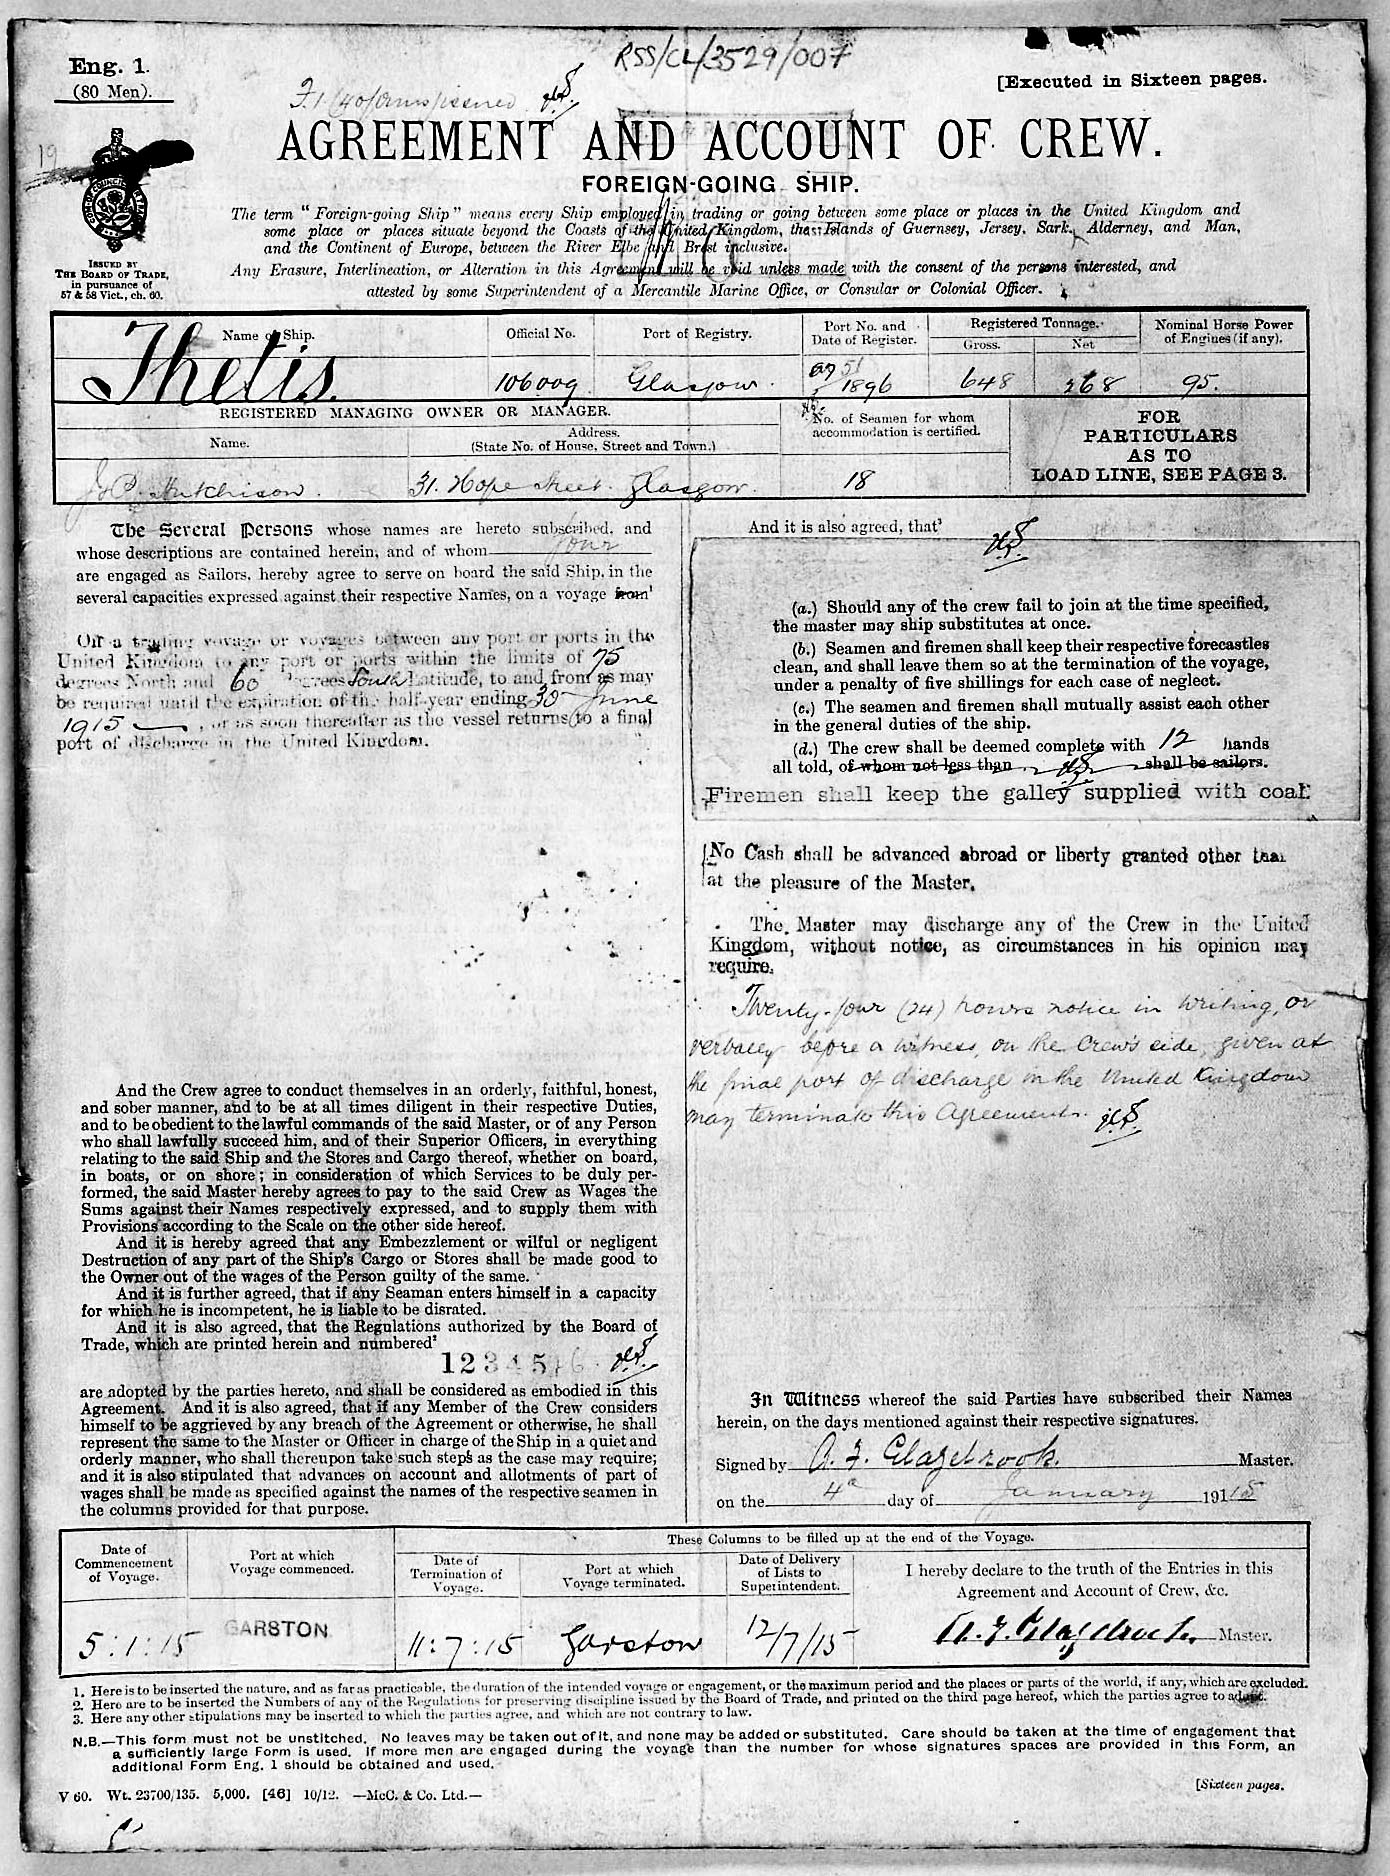 RSS/CL/3529/007
Eng. 1.
(80 Men).
[Executed in Sixteen pages.
19
AGREEMENT AND ACCOUNT OF CREW.
FOREIGN-GOING SHIP.
ISSUED BY
THE BOARD OF TRADE,
in pursuance of
57 & 58 Vict., ch. 60.
The term "Foreign-going Ship" means every Ship employed in trading or going between some place or places in the United Kingdom and
some place or places situate beyond the Coasts of the United Kingdom, the Islands of Guernsey, Jersey, Sark, Alderney, and Man,
and the Continent of Europe, between the River Elbe and Brest inclusive.
Any Erasure, Interlineation, or Alteration in this Agreement will be void unless made with the consent of the persons interested, and
attested by some Superintendent of a Mercantile Marine Office, or Consular or Colonial Officer.
Name of Ship. Official No. Port of Registry. Port No. and Date of Register. Registered Tonnage. Gross. Net Nominal Horse Power of Engines (if any).
Thetis. 106009 Glasgow. 1896 648 268 95.
REGISTERED MANAGING OWNER OR MANAGER.
No. of Seamen for whom
accommodation is certified.
Name. Address.
(State No. of House, Street and Town.)
FOR
PARTICULARS
AS TO
LOAD LINE, SEE PAGE 3.
Hutchison. 31. Hope Street. Glasgow. 18
The Several Persons whose names are hereto subscribed, and
whose descriptions are contained herein, and of whom four
are engaged as Sailors, hereby agree to serve on board the said Ship, in the
several capacities expressed against their respective Names, on a voyage from¹
On a trading voyage or voyages between any port or ports in the
United Kingdom to any port or ports within the limits of 75
degrees North and 60 degrees South Latitude, to and from as may
be required until the expiration of the half-year ending 30 June
1915, or as soon thereafter as the vessel returns to a final
port of discharge in the United Kingdom.
And the Crew agree to conduct themselves in an orderly, faithful, honest,
and sober manner, and to be at all times diligent in their respective Duties,
and to be obedient to the lawful commands of the said Master, or of any Person
who shall lawfully succeed him, and of their Superior Officers, in everything
relating to the said Ship and the Stores and Cargo thereof, whether on board,
in boats, or on shore; in consideration of which Services to be duly per-
formed, the said Master hereby agrees to pay to the said Crew as Wages the
Sums against their Names respectively expressed, and to supply them with
Provisions according to the Scale on the other side hereof.
And it is hereby agreed that any Embezzlement or wilful or negligent
Destruction of any part of the Ship's Cargo or Stores shall be made good to
the Owner out of the wages of the Person guilty of the same.
And it is further agreed, that if any Seaman enters himself in a capacity
for which he is incompetent, he is liable to be disrated.
And it is also agreed, that the Regulations authorized by the Board of
Trade, which are printed herein and numbered²
1 2 3 4 5 6
are adopted by the parties hereto, and shall be considered as embodied in this
Agreement. And it is also agreed, that if any Member of the Crew considers
himself to be aggrieved by any breach of the Agreement or otherwise, he shall
represent the same to the Master or Officer in charge of the Ship in a quiet and
orderly manner, who shall thereupon take such steps as the case may require;
and it is also stipulated that advances on account and allotments of part of
wages shall be made as specified against the names of the respective seamen in
the columns provided for that purpose.
And it is also agreed, that³
(a.) Should any of the crew fail to join at the time specified,
the master may ship substitutes at once.
(b.) Seamen and firemen shall keep their respective forecastles
clean, and shall leave them so at the termination of the voyage,
under a penalty of five shillings for each case of neglect.
(c.) The seamen and firemen shall mutually assist each other
in the general duties of the ship.
(d.) The crew shall be deemed complete with 12 hands
all told, of whom not less than shall be sailors.
Firemen shall keep the galley supplied with coal.
No Cash shall be advanced abroad or liberty granted other than
at the pleasure of the Master.
The Master may discharge any of the Crew in the United
Kingdom, without notice, as circumstances in his opinion may
require.
Twenty-four (24) hours notice in writing, or
verbally before a witness, on the Crew's side, given at
the final port of discharge in the United Kingdom
may terminate this Agreement.
In Witness whereof the said Parties have subscribed their Names
herein, on the days mentioned against their respective signatures.
Signed by A. F. Glazebrook. Master.
on the 4th day of January 1915
These Columns to be filled up at the end of the Voyage.
Date of Commencement of Voyage. Port at which Voyage commenced. Date of Termination of Voyage. Port at which Voyage terminated. Date of Delivery of Lists to Superintendent.
I hereby declare to the truth of the Entries in this
Agreement and Account of Crew, &c.
5:1:15 GARSTON 11:7:15 Garston 12/7/15 A. F. Glazebrook Master.
1. Here is to be inserted the nature, and as far as practicable, the duration of the intended voyage or engagement, or the maximum period and the places or parts of the world, if any, which are excluded.
2. Here are to be inserted the Numbers of any of the Regulations for preserving discipline issued by the Board of Trade, and printed on the third page hereof, which the parties agree to adopt.
3. Here any other stipulations may be inserted to which the parties agree, and which are not contrary to law.
N.B.—This form must not be unstitched. No leaves may be taken out of it, and none may be added or substituted. Care should be taken at the time of engagement that
a sufficiently large Form is used. If more men are engaged during the voyage than the number for whose signatures spaces are provided in this Form, an
additional Form Eng. 1 should be obtained and used.
V 60. Wt. 23700/135. 5,000. [46] 10/12. —McC. & Co. Ltd.—
[Sixteen pages.